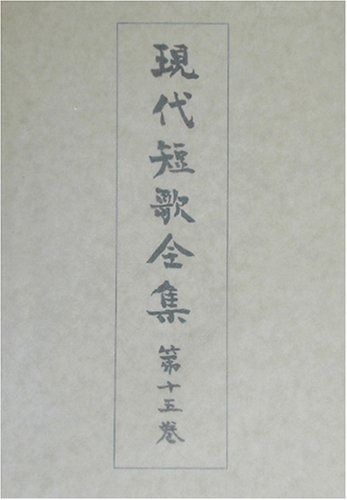 現代短歌全集 第十五巻